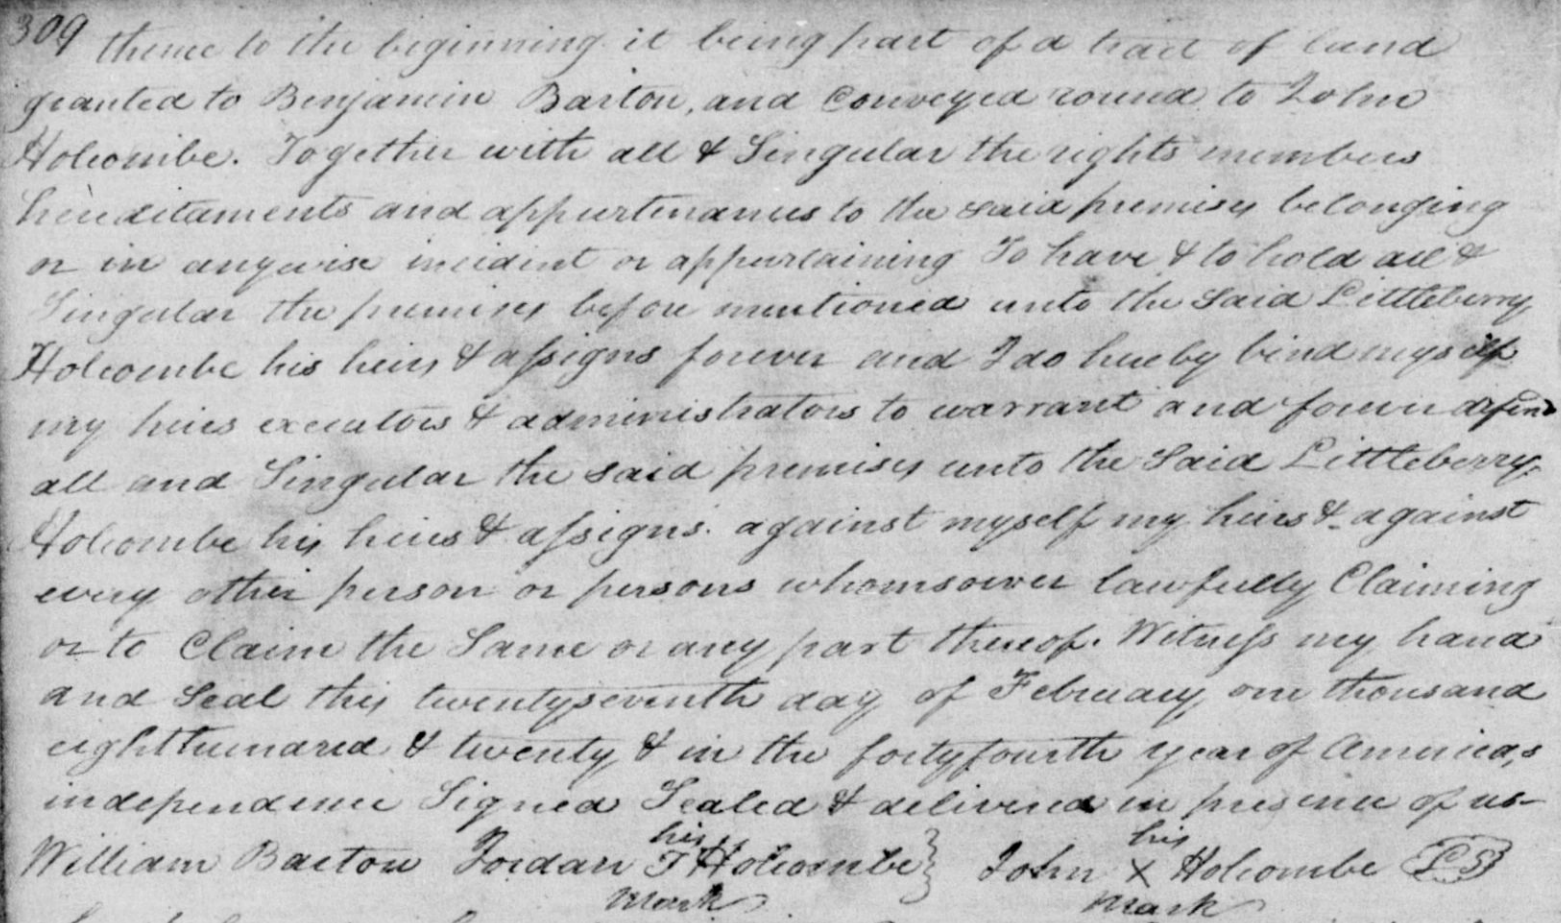 309
thence to the beginning it being part of a tract of land
granted to Benjamin Barton, and Conveyed round to John
Holcombe. Together with all & Singular the rights members
hereditaments and appurtenances to the said premises belonging
or in anywise incident or appurtaining To have & to hold all &
Singular the premises before mentioned unto the Said Littleberry
Holcombe his heirs & assigns forever and I do hereby bind myself
my heirs executors & administrators to warrant and forever defend
all and Singular the said premises unto the Said Littleberry
Holcombe his heirs & assigns. against myself my heirs & against
every other person or persons whomsoever lawfully Claiming
or to Claim the Same or any part thereof. Witness my hand
and Seal this twentyseventh day of February, one thousand
eighthundred & twenty & in the fortyfourth year of America,s
independence Signed Sealed & delivered in presence of us-
his his
William Barton Jordan T Holcombe } John X Holcombe (LS)
mark mark